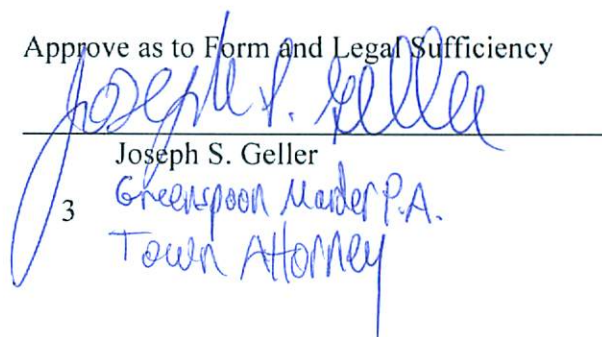 Approve as to Form and Legal Sufficiency
Joseph S. Geller
Joseph S. Geller
3
Greenspoon Marder P.A.
Town Attorney